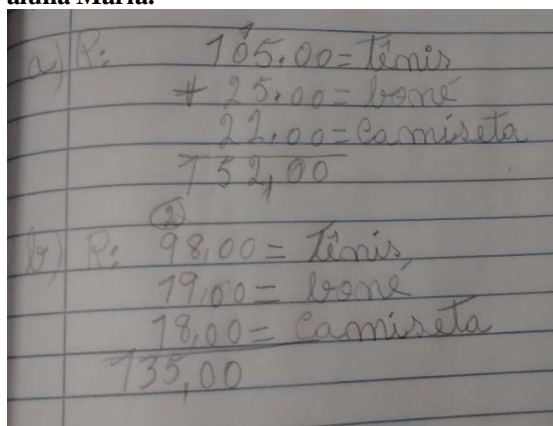 aluna Maria.
1
a) R: 105,00 = tênis
+ 25,00 = boné
22,00 = Camiseta
152,00
2
b) R: 98,00 = Tênis
19,00 = boné
18,00 = Camiseta
135,00